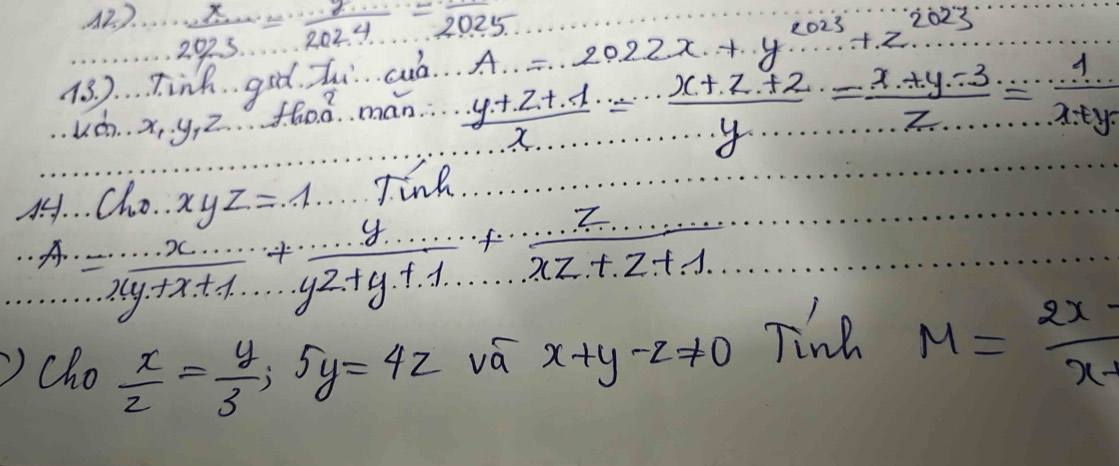 12) x/2023 = y/2024 = /2025
13) Tính giá trị của A = 2022x + y^2023 + z^2023
với x, y, z thoả mãn: (y+z+1)/x = (x+z+2)/y = (x+y-3)/z = 1/(x+y-
14. Cho xyz = 1 Tính
A = x/(xy+x+1) + y/(yz+y+1) + z/(xz+z+1)
) Cho x/2 = y/3; 5y = 4z và x+y-z≠0 Tính M = (2x -)/(x+